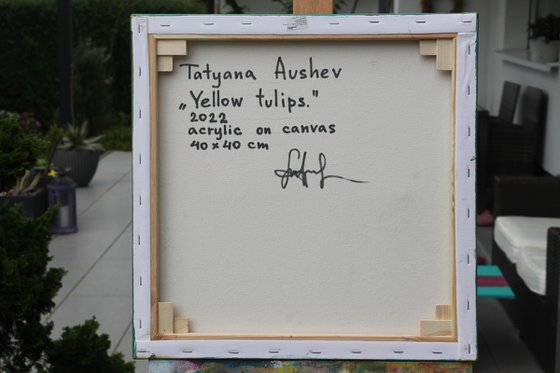 Tatyana Aushev
„Yellow tulips."
2022
acrylic on canvas
40 x 40 cm